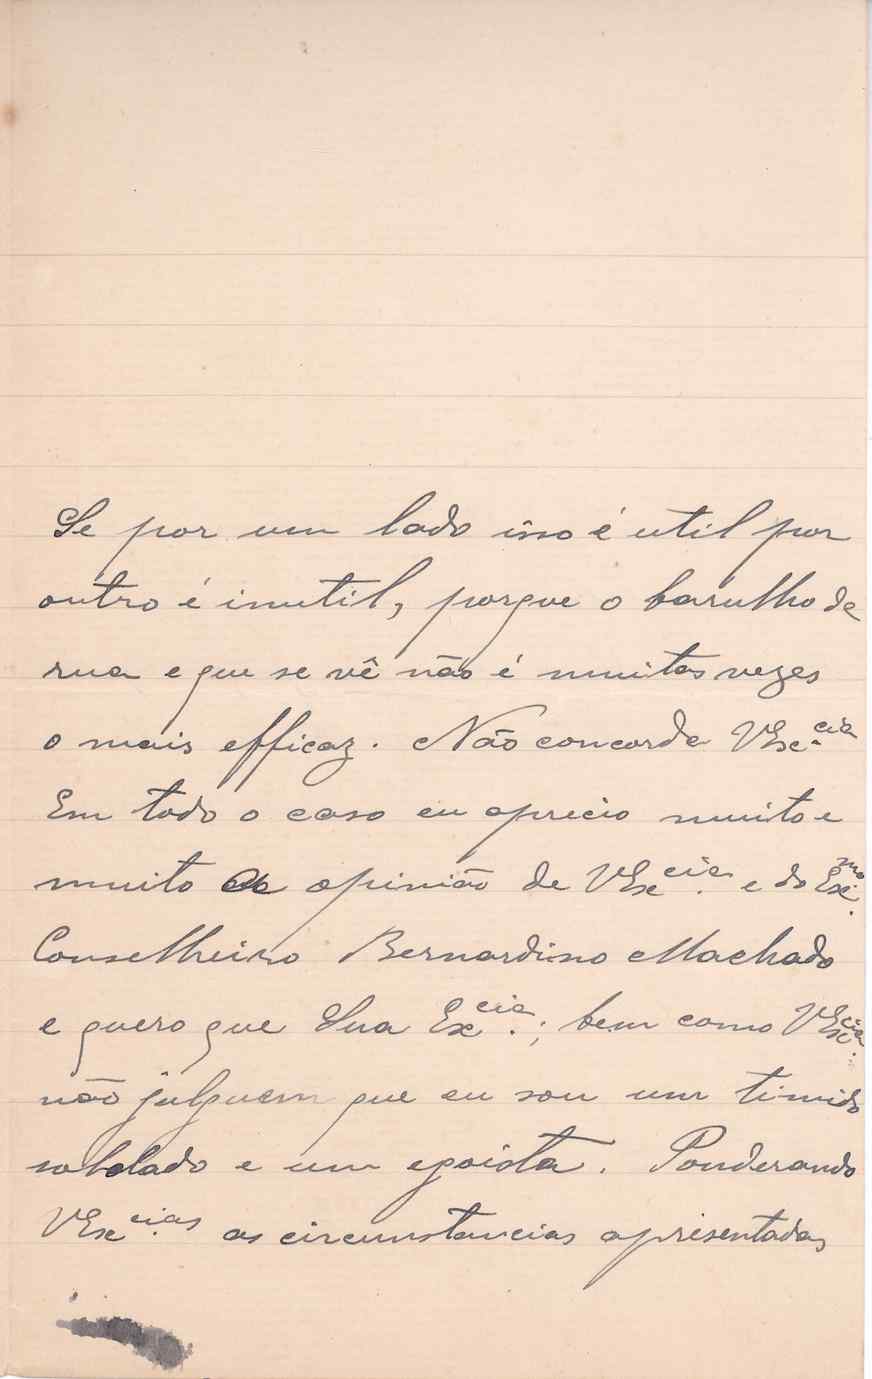 Se por um lado isso é util por
outro é inutil, porque o barulho da
rua e que se vê não é muitas vezes
o mais efficaz. Não concorda VEx.cia
Em todo o caso eu aprecio muito e
muito a opinião de VEx.cia e do Ex.mo
Conselheiro Bernardino Machado
e quero que Sua Ex.cia; bem como VEx.cia
não julguem que eu sou um timido
soldado e um egoista. Ponderando
VEx.cias as circunstancias apresentadas